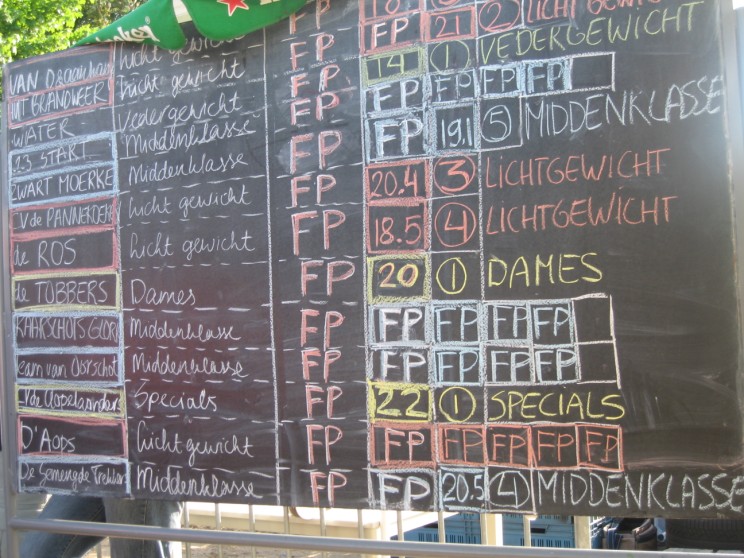 FP 21 ② LICHTGEWICHT
VAN Licht gewicht FP 14 ① VEDERGEWICHT
UT BRANDWEER Licht gewicht FP FP FP FP FP
WATER Vedergewicht FP FP 19.1 ⑤ MIDDENKLASSE
START Middenklasse FP
ZWART MOERKE Middenklasse FP 20.4 ③ LICHTGEWICHT
V de PANNEKOEK Licht gewicht FP 18.5 ④ LICHTGEWICHT
de ROS Licht gewicht FP
de TOBBERS Dames FP 20 ① DAMES
Middenklasse FP FP FP FP FP
Team van Oorschot Middenklasse FP FP FP FP FP
Specials FP 22 ① SPECIALS
D'Aops Lichtgewicht FP FP FP FP FP FP
De Gemengde Trekkers Middenklasse FP FP 20.5 ④ MIDDENKLASSE